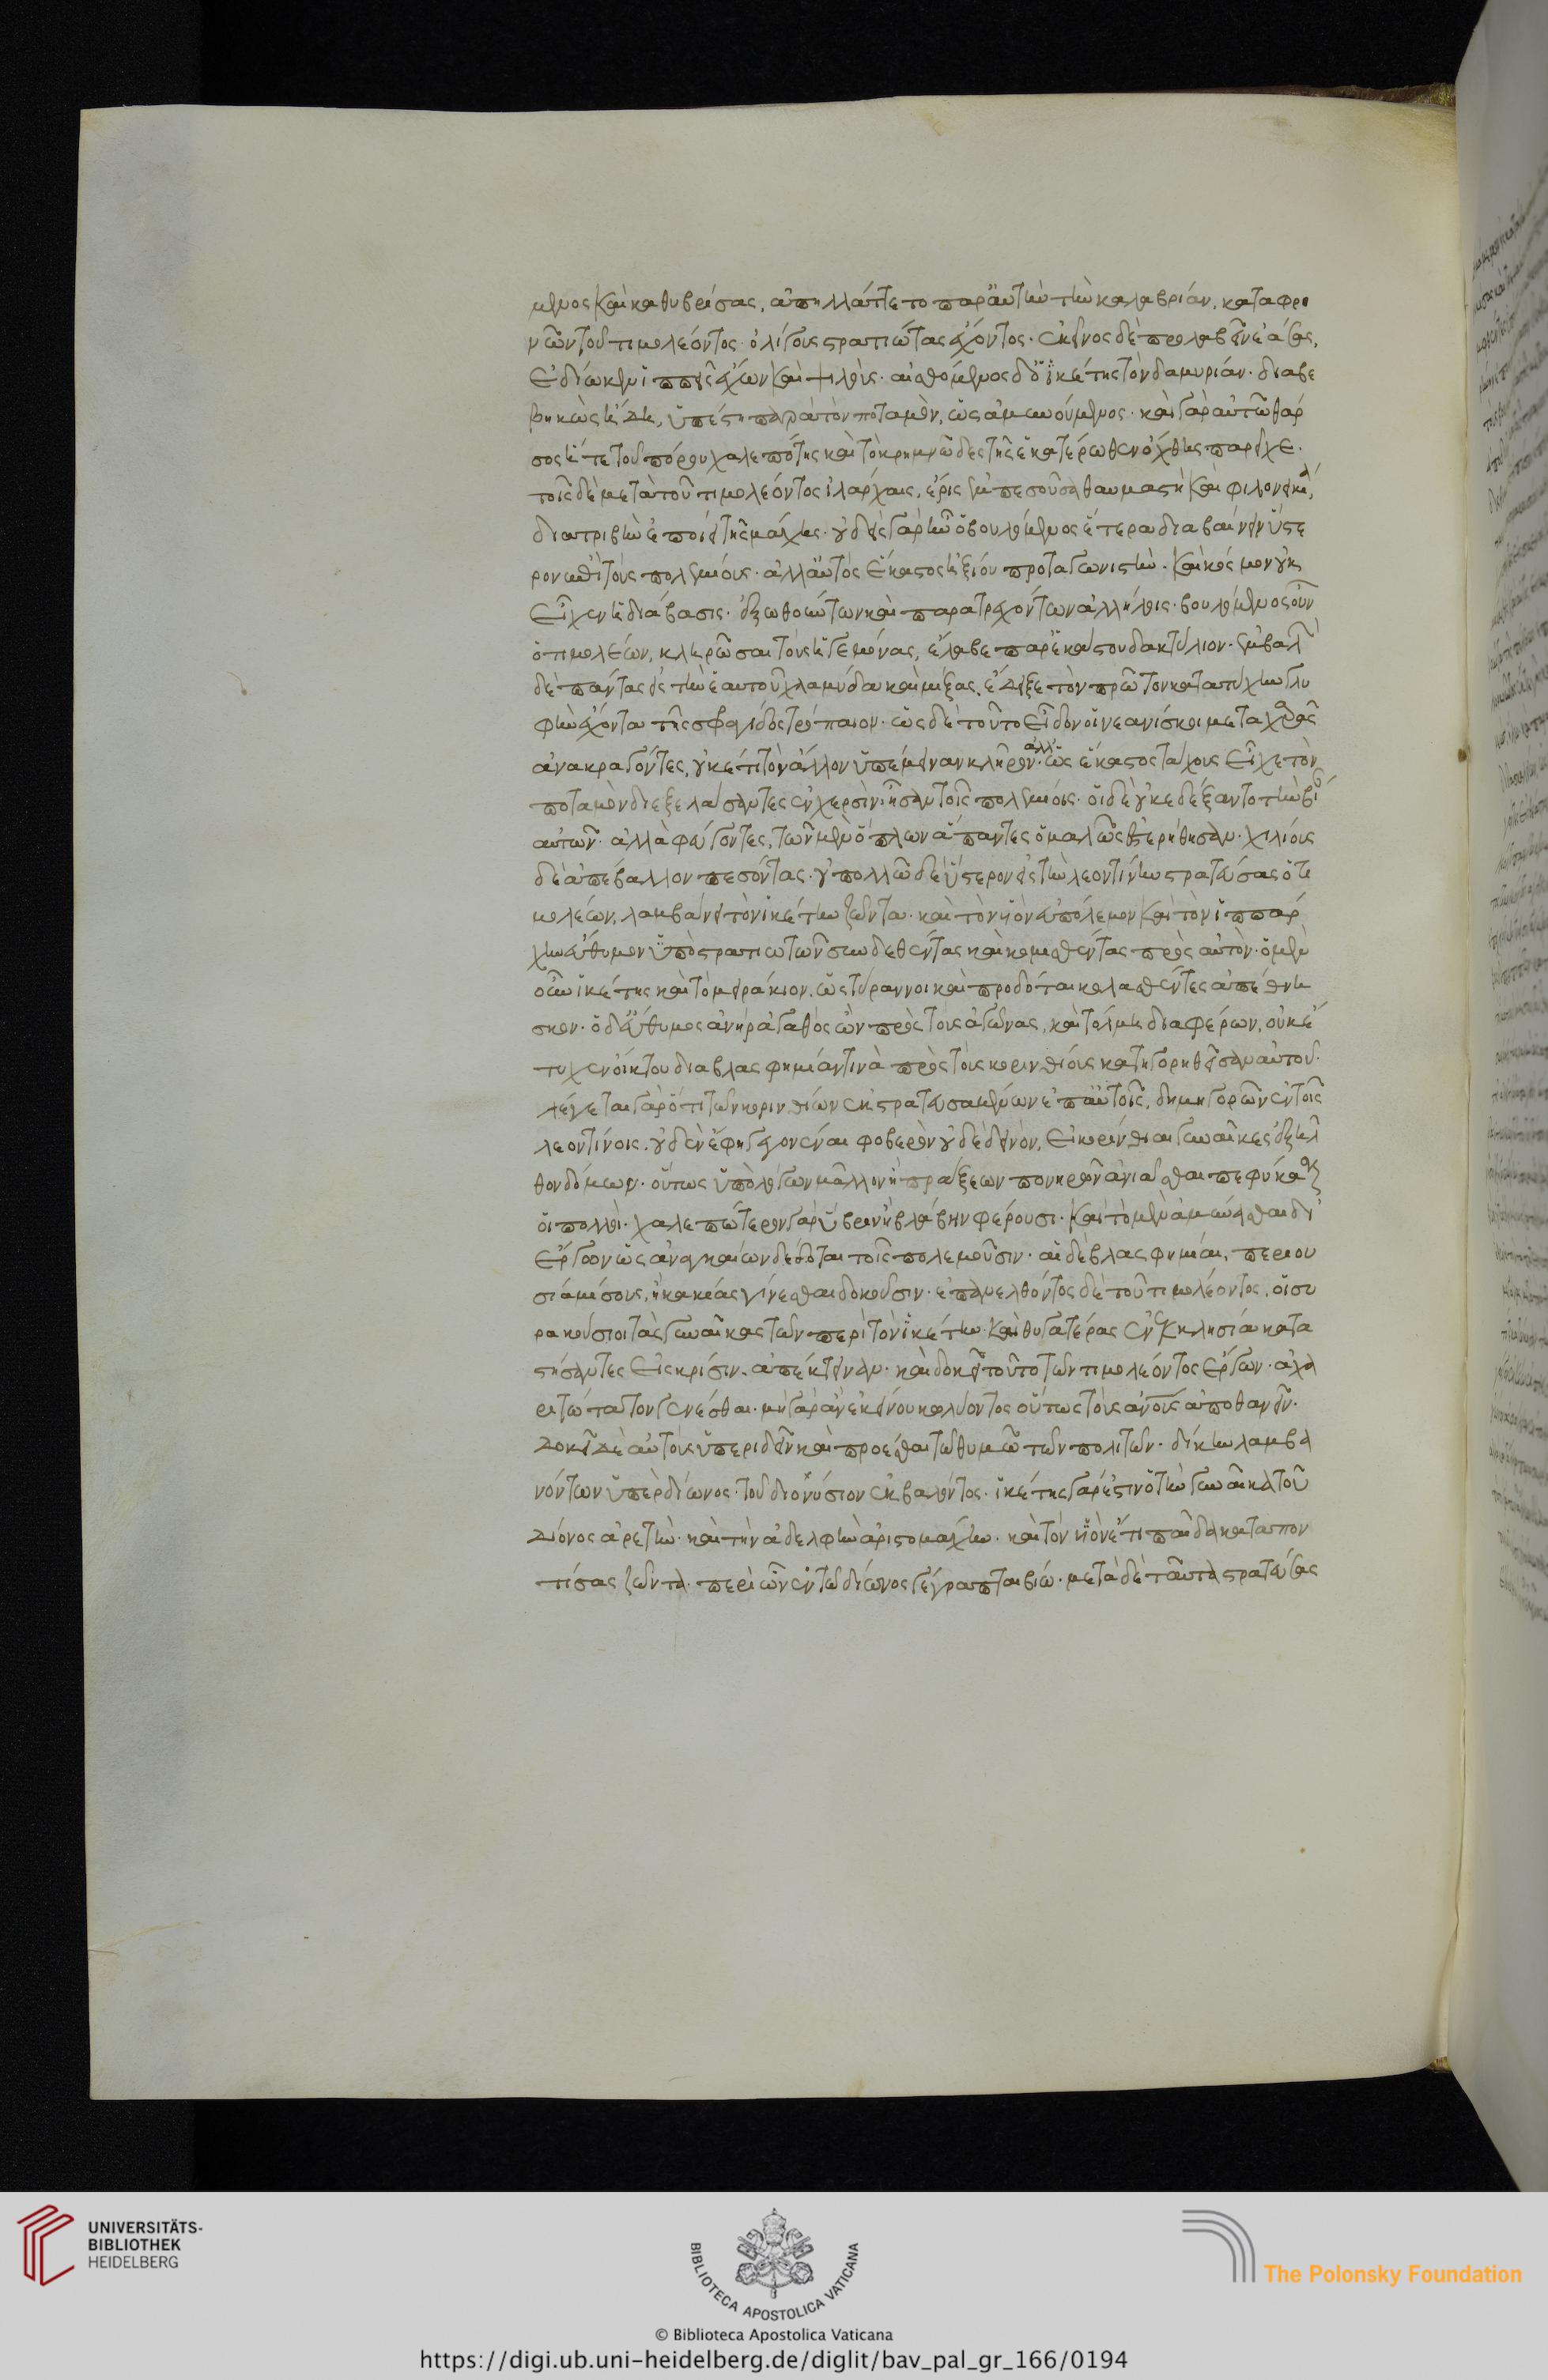 μενος καὶ καθυβρίσας, ἀπηλλάττετο παρ' αὐτὴν τὴν καλαβρίαν, καταφρο
νῶν τοῦ τιμολέοντος ὀλίγους στρατιώτας ἔχοντος. ἐκεῖνος δὲ προλαβεῖν ἐάσας,
ἐδίωκεν ἱππεῖς ἔχων καὶ ψιλούς. αἰσθόμενος δ' ὁ ἱκέτης τὸν δαμυρίαν διαβε
βηκὼς ἤδη, ὑπέστη παρὰ τὸν ποταμὸν, ὡς ἀμυνούμενος. καὶ γὰρ αὐτῶ θάρ
σος ἥ τε τοῦ πόρου χαλεπότης καὶ τὸ κρημνῶδες τῆς ἑκατέρωθεν ὄχθης παρεῖχε.
τοῖς δὲ μετὰ τοῦ τιμολέοντος ἰλάρχαις, ἔρις ἐμπεσοῦσα θαυμαστὴ καὶ φιλονεικία,
διατριβὴν ἐποίει τῆς μάχης. οὐδεὶς γὰρ ἦν ὁ βουλόμενος ἑτέρου διαβαίνειν ὕστε
ρον ἐπὶ τοὺς πολεμίους. ἀλλ' αὐτὸς ἕκαστος ἠξίου πρωταγωνιστεῖν. καὶ κόσμον οὐκ
εἶχεν ἡ διάβασις. ἐξωθούντων καὶ παρατρεχόντων ἀλλήλους. βουλόμενος οὖν
ὁ τιμολέων, κληρῶσαι τοὺς ἡγεμόνας, ἔλαβε παρ' ἑκάστου δακτύλιον. ἐμβαλὼν
δὲ πάντας εἰς τὴν ἑαυτοῦ χλαμύδα καὶ μίξας, ἔδειξε τὸν πρῶτον κατὰ τύχην γλυ
φὴν ἔχοντα τῆς σφραγῖδος τρόπαιον. ὡς δὲ τοῦτο εἶδον οἱ νεανίσκοι μετὰ χαρᾶς
ἀνακραγόντες, οὐκέτι τὸν ἄλλον ὑπέμειναν κλῆρον. ἀλλ' ὡς ἕκαστος τάχους εἶχε τὸν
ποταμὸν διεξελάσαντες ἐν χερσὶν ἦσαν τοῖς πολεμίοις. οἱ δὲ οὐκ ἐδέξαντο τὴν βίαν
αὐτῶν. ἀλλὰ φεύγοντες, τῶν μὲν ὅπλων ἅπαντες ὁμαλῶς ἐστερήθησαν. χιλίους
δὲ ἀπέβαλλον πεσόντας. οὐ πολλῶ δὲ ὕστερον εἰς τὴν λεοντίνην στρατεύσας ὁ τι
μολέων, λαμβάνει τὸν ἱκέτην ζῶντα. καὶ τὸν υἱὸν εὐπόλεμον καὶ τὸν ἵππαρ
χον εὔθυμον ὑπὸ στρατιωτῶν συνδεθέντας καὶ κομισθέντας πρὸς αὐτόν. ὁ μὲν
οὖν ἱκέτης καὶ τὸ μειράκιον, ὡς τύραννοι καὶ προδόται κολασθέντες ἀπέθνη
σκον. ὁ δ' εὔθυμος ἀνὴρ ἀγαθὸς ὢν πρὸς τοὺς ἀγῶνας, καὶ τόλμη διαφέρων, οὐκ ἔ
τυχεν οἴκτου διὰ βλασφημίαν τινὰ πρὸς τοὺς κορινθίους κατηγορηθεῖσαν αὐτοῦ.
λέγεται γὰρ ὅτι τῶν κορινθίων ἐκστρατευσαμένων ἐπ' αὐτοῖς, δημηγορῶν ἐν τοῖς
λεοντίνοις. οὐδὲν ἔφη γεγονέναι φοβερὸν οὐδὲ δεινὸν, εἰ κορίνθιαι γυναῖκες ἐξῆλ
θον δόμων. οὕτως ὑπὸ λόγων μᾶλλον ἢ πράξεων πονηρῶν ἀνιᾶσθαι πεφύκασιν
οἱ πολλοί. χαλεπώτερον γὰρ ὕβριν ἢ βλάβην φέρουσι. καὶ τὸ μὲν ἀμύνεσθαι δι'
ἔργων ὡς ἀναγκαίων δέδοται τοῖς πολεμοῦσιν. αἱ δὲ βλασφημίαι, περιου
σία μίσους, ἢ κακίας γίνεσθαι δοκοῦσιν. ἐπανελθόντος δὲ τοῦ τιμολέοντος, οἱ συ
ρακούσιοι τὰς γυναῖκας τῶν περὶ τὸν ἱκέτην καὶ θυγατέρας ἐν ἐκκλησία κατα
στήσαντες εἰς κρίσιν, ἀπέκτειναν. καὶ δοκεῖ τοῦτο τῶν τιμολέοντος ἔργων ἀχα
ριστώτατον γενέσθαι. μὴ γὰρ ἂν ἐκείνου κωλύοντος οὕτως τοὺς ἀνους ἀποθανεῖν.
δοκεῖ δὲ αὐτοὺς ὑπεριδεῖν καὶ προέσθαι τῶ θυμῶ τῶν πολιτῶν. δίκην λαμβα
νόντων ὑπὲρ δίωνος τοῦ διονύσιον ἐκβαλόντος. ἱκέτης γάρ ἐστιν ὁ τὴν γυναῖκα τοῦ
δίωνος ἀρετὴν καὶ τὴν ἀδελφὴν ἀριστομάχην. καὶ τὸν υἱὸν ἔτι παῖδα καταπον
τίσας ζῶντα. περὶ ὧν ἐν τῶ δίωνος γέγραπται βίω. μετὰ δὲ ταῦτα στρατεύσας
UNIVERSITÄTS-
BIBLIOTHEK
HEIDELBERG
BIBLIOTECA APOSTOLICA VATICANA
The Polonsky Foundation
© Biblioteca Apostolica Vaticana
https://digi.ub.uni-heidelberg.de/diglit/bav_pal_gr_166/0194